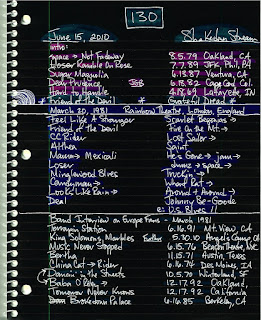 130
June 15, 2010 Shakedown Stream
intro:
space → Not Fadeaway 8.5.79 Oakland, CA
Loser Ramble On Rose 7.7.89 JFK, Phil, PA
Sugar Magnolia 6.13.87 Ventura, CA
Dear Prudence JGB 6.8.82 Cape Cod, Col.
Hard to Handle 4.8.69 Lafayette, IN
* Friend of the Devil * Grateful Dead *
March 20, 1981 Rainbow Theatre, London, England
Feel Like A Stranger Scarlet Begonias →
Friend of the Devil Fire On the Mt. →
CC Rider Lost Sailor →
Althea Saint
Mama → Mexicali He's Gone → jam →
Loser drumz → space →
Minglewood Blues Truckin' →
Candyman → Wharf Rat →
Looks Like Rain → Around + Around →
Deal Johnny Be-Goode
e: U.S. Blues //
Band Interview on Europe Fans - March 1981
Terrapin Station 6.16.91 Mt. View, CA
King Solomon's Marbles Further 5.30.10 Angels Camp, CA
Music Never Stopped 6.15.76 Beacon Theatre, NYC
Bertha 11.15.71 Austin, Texas
China Cat → Rider 6.16.74 Des Moines, IA
Dancin' in the Streets 10.5.70 Winterland, SF
Baba O'Riley → 12.17.92 Oakland,
Tomorrow Never Knows 12.17.92 California
Brokedown Palace 6.16.85 Berkeley, CA